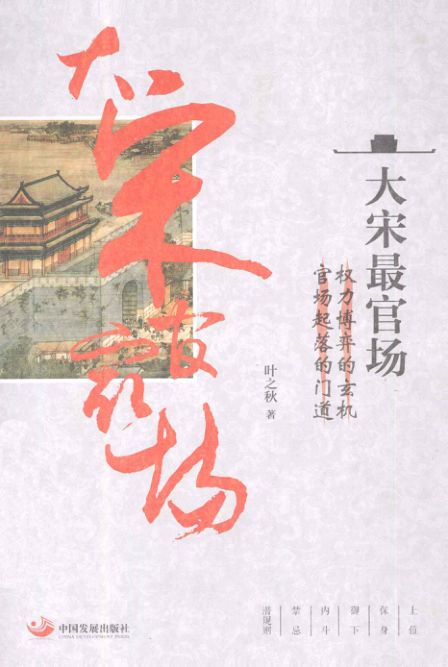 大宋最官场
权力博弈的玄机
官场起落的门道
叶之秋 著
大宋最官场
上位
保身
御下
内斗
禁忌
潜规则
中国发展出版社
CHINA DEVELOPMENT PRESS